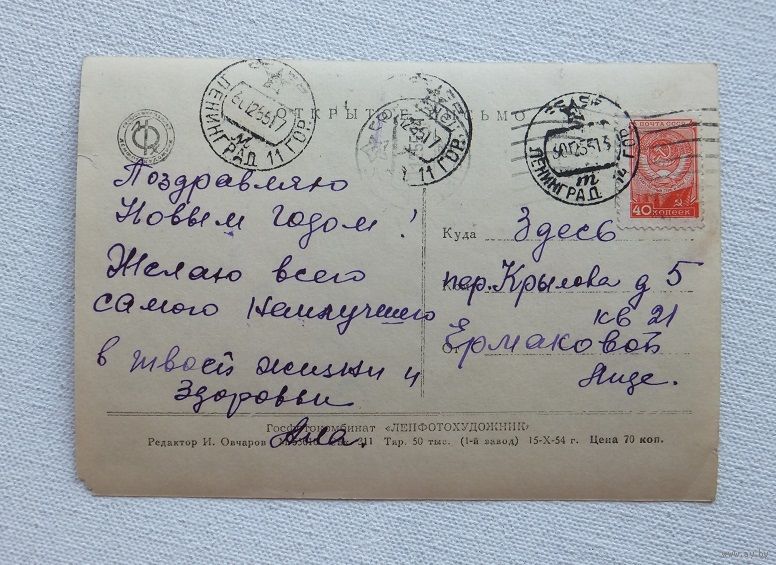 ОТКРЫТОЕ ПИСЬМО
ЛЕНИНГРАД 11 ГОР.
11 ГОР.
ЛЕНИНГРАД 14 ГОР.
ПОЧТА СССР
40 КОПЕЕК
Поздравляю
Новым годом!
Желаю всего
самого наилучшего
в твоей жизни и
здоровьи
Куда Здесь
пер. Крылова д 5
кв 21
Ермаковой
От
Лиде.
Госфотокомбинат «ЛЕНФОТОХУДОЖНИК»
Редактор И. Овчаров
211 Тир. 50 тыс. (1-й завод) 15-X-54 г. Цена 70 коп.
www.ay.by